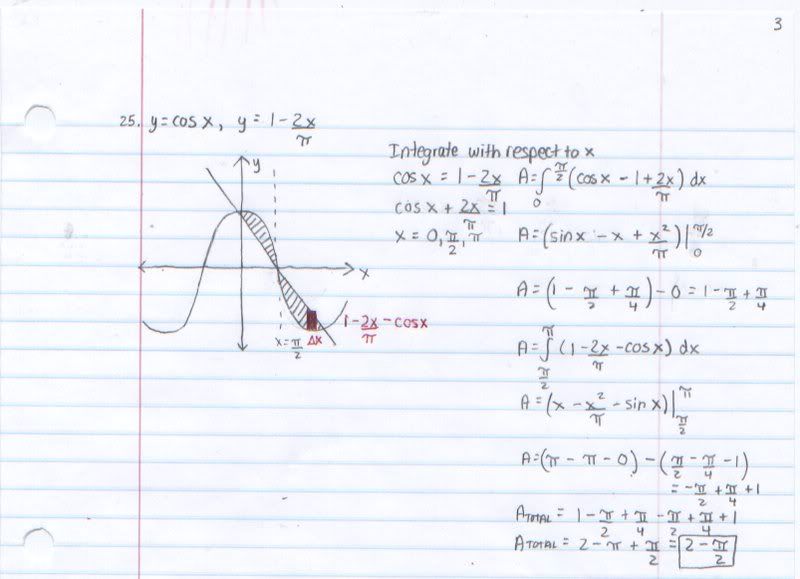 3
25. y=cos x, y = 1 - 2x/π
y
x
x=π/2
Δx
1 - 2x/π - cosx
Integrate with respect to x
cos x = 1 - 2x/π
cos x + 2x/π = 1
x = 0, π/2, π
A = ∫₀^(π/2) (cosx - 1 + 2x/π) dx
A = (sinx - x + x²/π)|₀^(π/2)
A = (1 - π/2 + π/4) - 0 = 1 - π/2 + π/4
A = ∫_(π/2)^π (1 - 2x/π - cosx) dx
A = (x - x²/π - sinx)|_(π/2)^π
A = (π - π - 0) - (π/2 - π/4 - 1)
= -π/2 + π/4 + 1
A TOTAL = 1 - π/2 + π/4 - π/2 + π/4 + 1
A TOTAL = 2 - π + π/2 = 2 - π/2